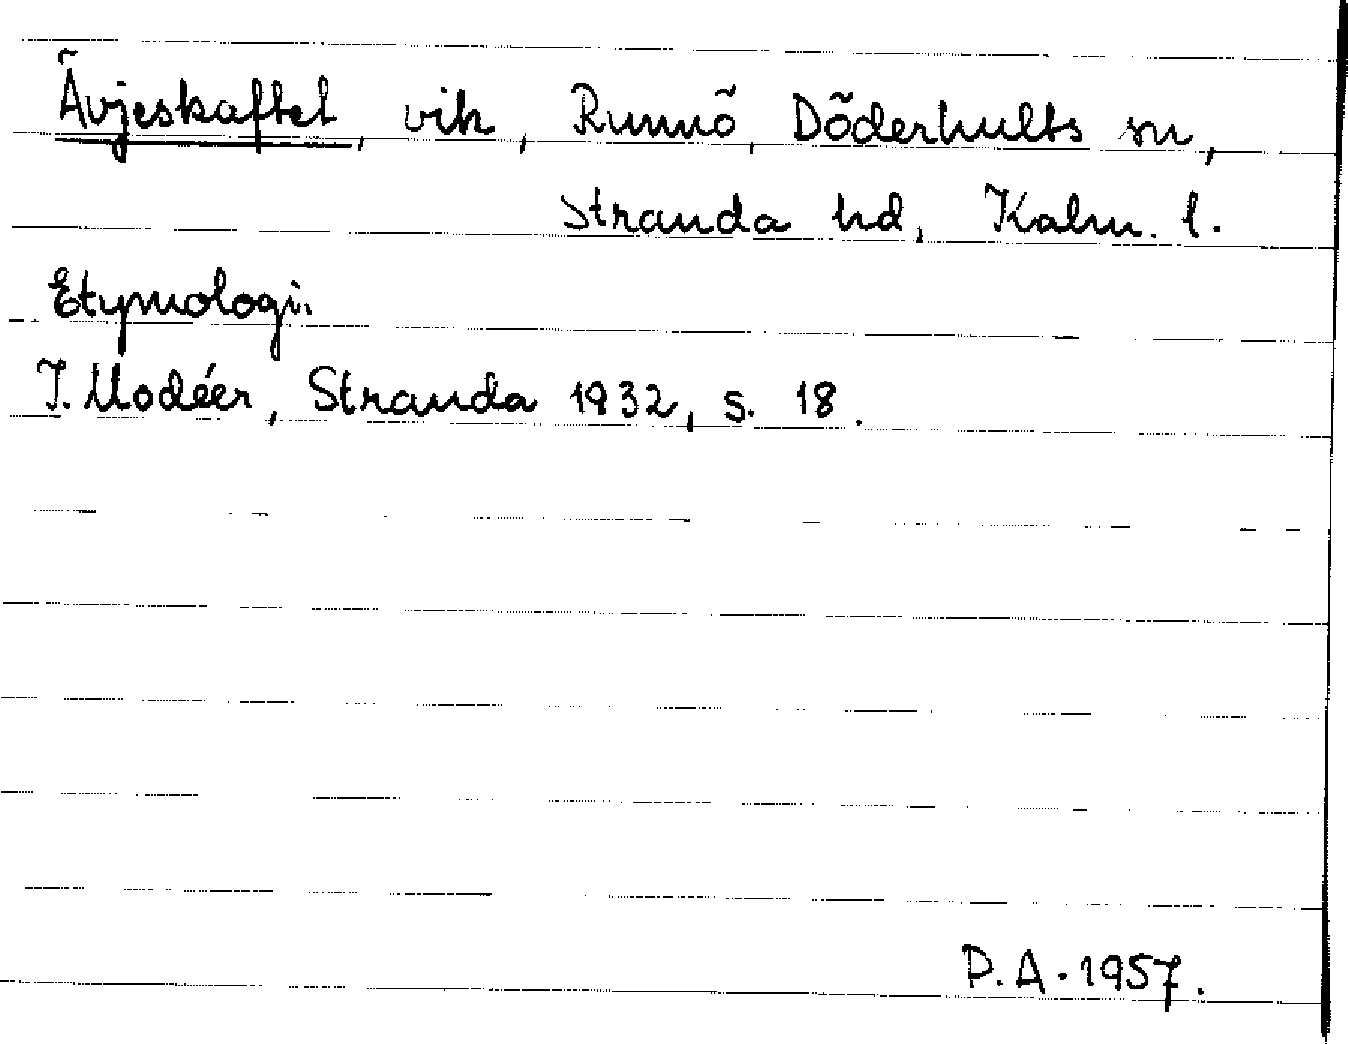 Ävjeskaftet, vik, Runnö, Döderhults sn,
Stranda hd, Kalm. l.
Etymologi.
I. Modéer, Stranda 1932, s. 18.
P.A. 1957.